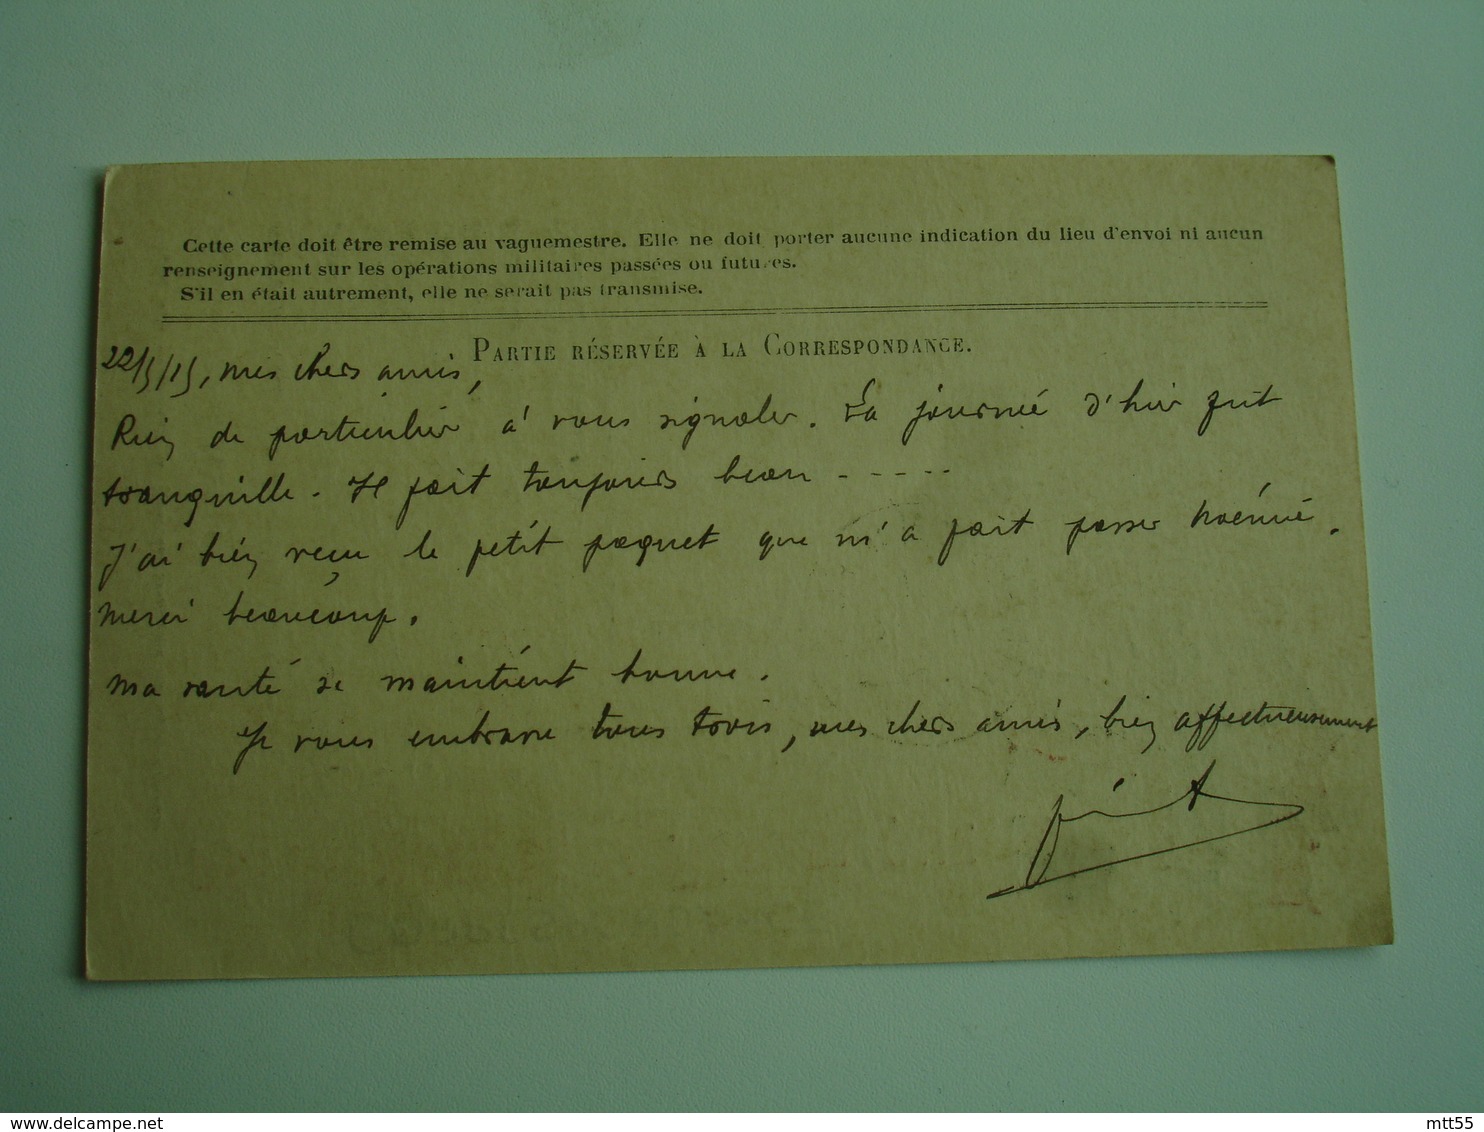 Cette carte doit être remise au vaguemestre. Elle ne doit porter aucune indication du lieu d'envoi ni aucun
renseignement sur les opérations militaires passées ou futures.
S'il en était autrement, elle ne serait pas transmise.
PARTIE RÉSERVÉE À LA CORRESPONDANCE.
22/5/15, mes chers amis,
Rien de particulier à vous signaler. La journée d'hier fut
tranquille. Il fait toujours beau -----
J'ai bien reçu le petit paquet que m'a fait passer Noémie.
Merci beaucoup.
Ma santé se maintient bonne.
Je vous embrasse tous trois, mes chers amis, bien affectueusement
delcampe.net
mtt55